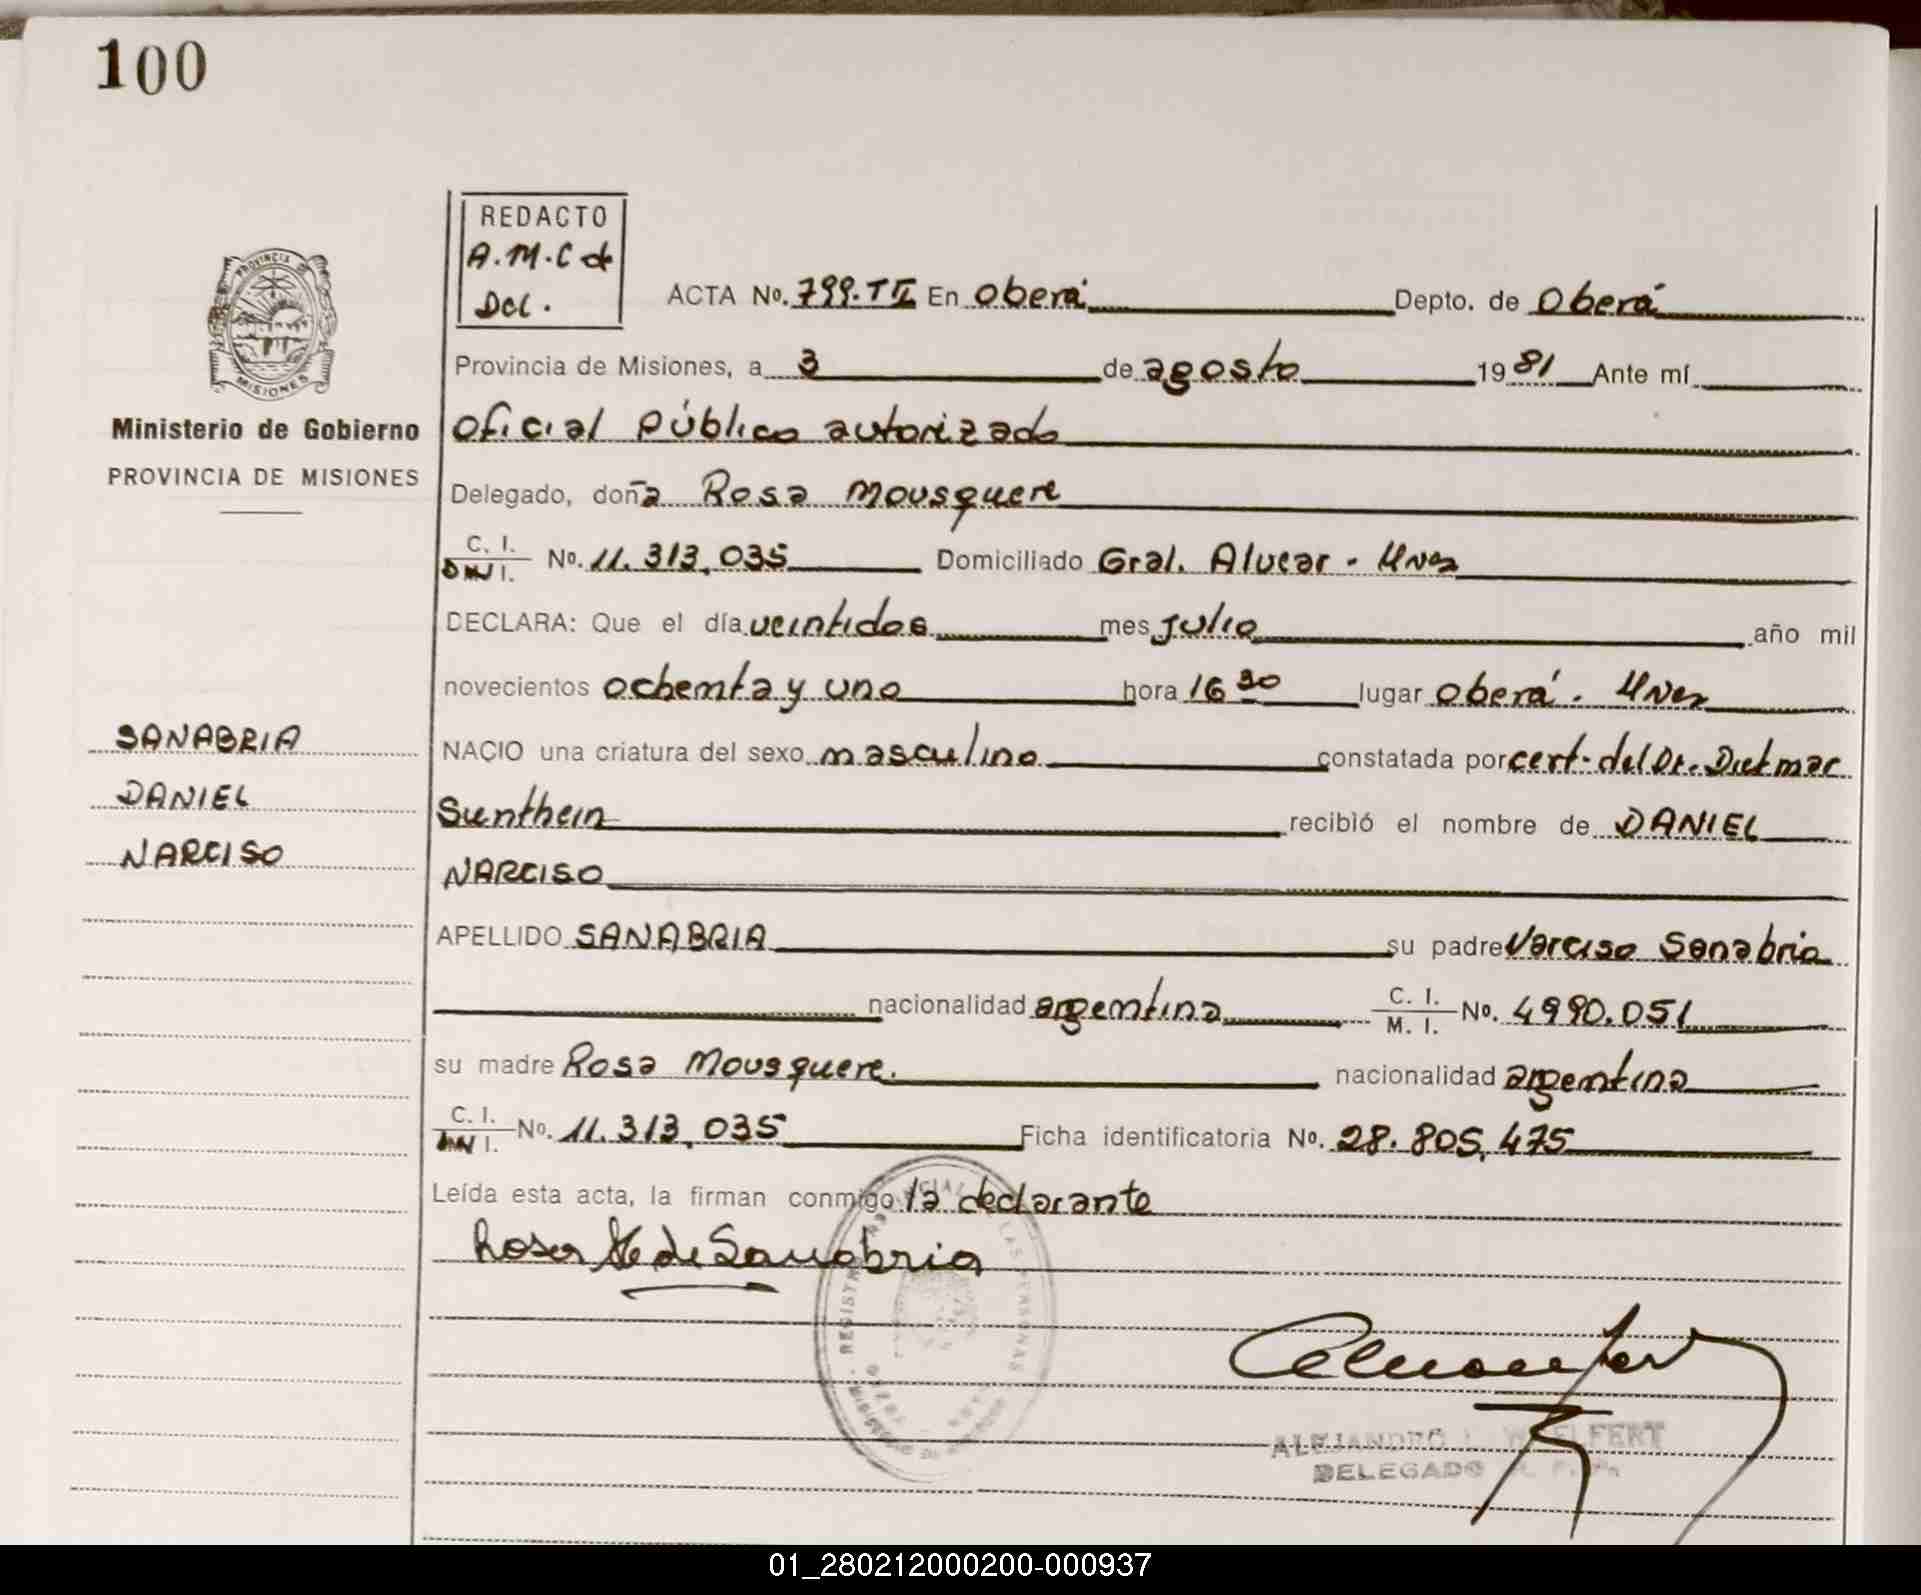 100
REDACTO
A.M.C de
Del.
PROVINCIA DE
MISIONES
Ministerio de Gobierno
PROVINCIA DE MISIONES
ACTA No. 799.T II En Oberá Depto. de Oberá
Provincia de Misiones, a 3 de agosto 1981 Ante mí
Oficial Público autorizado
Delegado, doña Rosa Mousquere
C. I.
DNI I. No. 11.313.035 Domiciliado Gral. Alvear - Mnes
DECLARA: Que el día veintidos mes julio año mil
novecientos ochenta y uno hora 16 30 lugar Oberá - Mnes
SANABRIA
DANIEL
NARCISO
NACIO una criatura del sexo masculino constatada por cert. del Dr. Dietmar
Sunthein recibió el nombre de DANIEL
NARCISO
APELLIDO SANABRIA su padre Narciso Sanabria
nacionalidad argentina C. I. M. I. No. 4990.051
su madre Rosa Mousquere. nacionalidad argentina
C. I.
DNI I. No. 11.313.035 Ficha identificatoria No. 28.805.475
Leída esta acta, la firman conmigo la declarante
Rosa M de Sanabria
REGISTRO PROVINCIAL DE LAS PERSONAS
ALEJANDRO WELFERT
DELEGADO
01_280212000200-000937